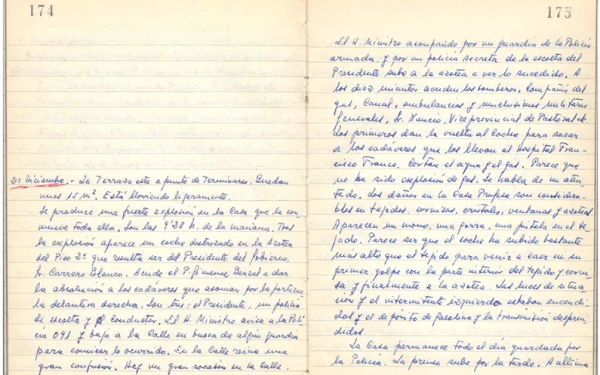 174
21 Diciembre.- La Terraza esta a punto de Terminarse. Quedan
unos 15 m². Está lloviendo ligeramente.
Se produce una fuerte explosión en la Casa que la con-
mueve toda ella. Son las 9'28 h. de la mañana. Tras
la explosión aparece un coche destrozado en la azotea
del Piso 2º que resulta ser del Presidente del Gobierno.
Sr. Carrero Blanco. Acude el P. Jimenez Berzal a dar
la absolución a los cadáveres que asoman por la portezue
la delantera derecha. Son tres: el Presidente, un policía
de escolta y el conductor. El H. Ministro avisa a la Poli
cía 091 y baja a la Calle en busca de algún guardia
para comunicar lo ocurrido. En la Calle reina una
gran confusión. Hay un gran socavón en la Calle.
175
El H. Ministro acompañado por un guardia de la Policía
armada y por un policía secreta de la escolta del
Presidente sube a la azotea a ver lo sucedido. A
los diez minutos acuden los bomberos. Compañía del
gas, Canal, ambulancias y muchisimos ministros
Generales. Sr. Nuncio, Viceprovincial de Pastoral etc
Los primeros dan la vuelta al coche para sacar
a los cadáveres que los llevan al Hospital Fran-
cisco Franco. Cortan el agua y el gas. Parece que
no ha sido explosión de gas. Se habla de un aten-
tado. Los daños en la Casa Profesa son considera
bles en tejados, cornisas, cristales, ventanas y azoteas
Aparecen una mano, una gorra, una pistola en el te-
jado. Parece ser que el coche ha subido bastante
mas alto que el tejado para venir a caer en su
primer golpe con la parte interior del tejado y corni
sa y finalmente a la azotea. Las luces de situa
ción y el intermitente izquierdo estaban encendi
dos y el depósito de Gasolina y la transmisión despren-
didos.
La Casa permanece todo el dia guardada por
la Policía. La prensa sube por la tarde. A ultima